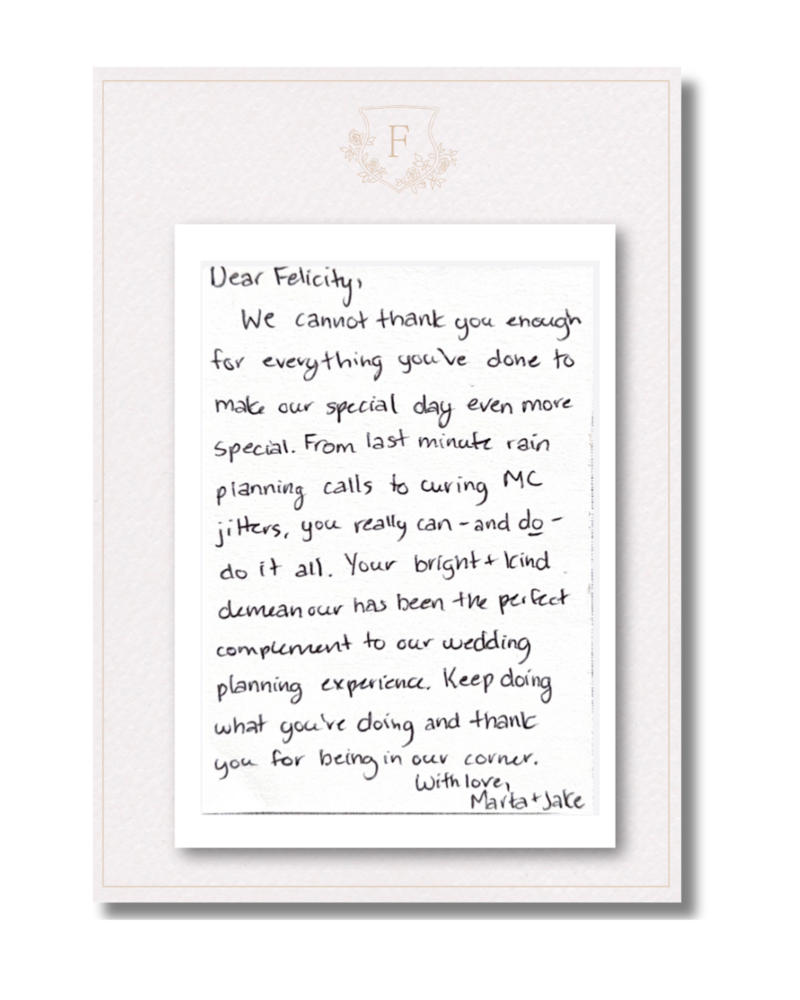 F
Dear Felicity,
We cannot thank you enough
for everything you've done to
make our special day even more
special. From last minute rain
planning calls to curing MC
jitters, you really can - and do -
do it all. Your bright + kind
demeanour has been the perfect
complement to our wedding
planning experience. Keep doing
what you've doing and thank
you for being in our corner.
With love,
Marta + Jake